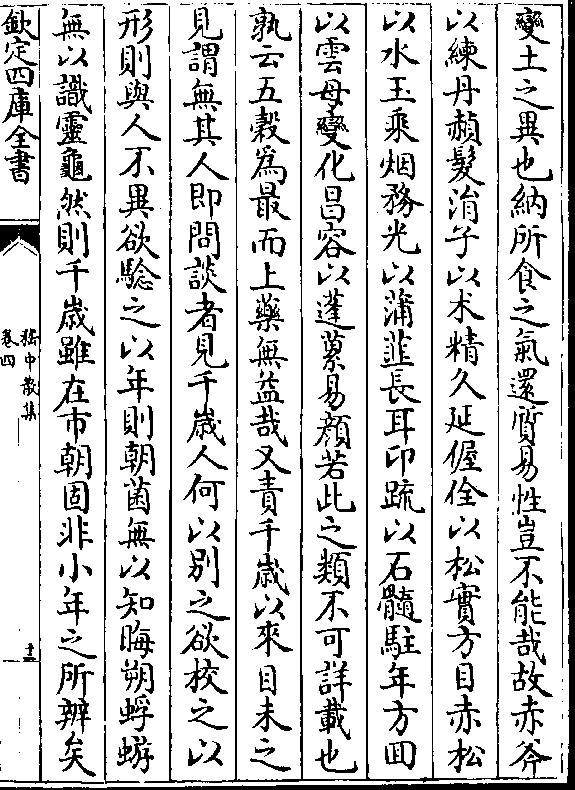 變土之異也納所食之氣還質易性豈不能哉故赤斧
以練丹赬髮涓子以术精久延偓佺以松實方目赤松
以水玉乘烟務光以蒲韮長耳卭疏以石髓駐年方回
以雲母變化昌容以蓬蔂易顔若此之類不可詳載也
孰云五穀為最而上藥無益哉又責千歲以來目未之
見謂無其人即問談者見千歲人何以別之欲校之以
形則與人不異欲驗之以年則朝菌無以知晦朔蜉蝣
無以識靈龜然則千歲雖在市朝固非小年之所辨矣
欽定四庫全書
嵇中散集
卷四
十二